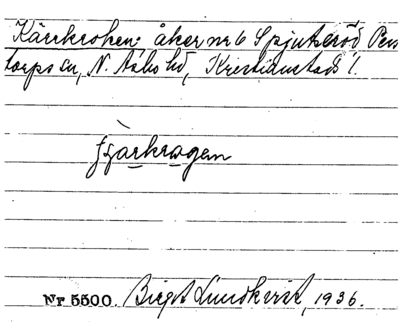 Kärrkroken: åker nr 6 Spjutseröd Pers
torps sn, N. Åsbo hd, Kristianstads l.
ɟarkrɷgen
Nr 5500. Birgit Lundkvist, 1936.